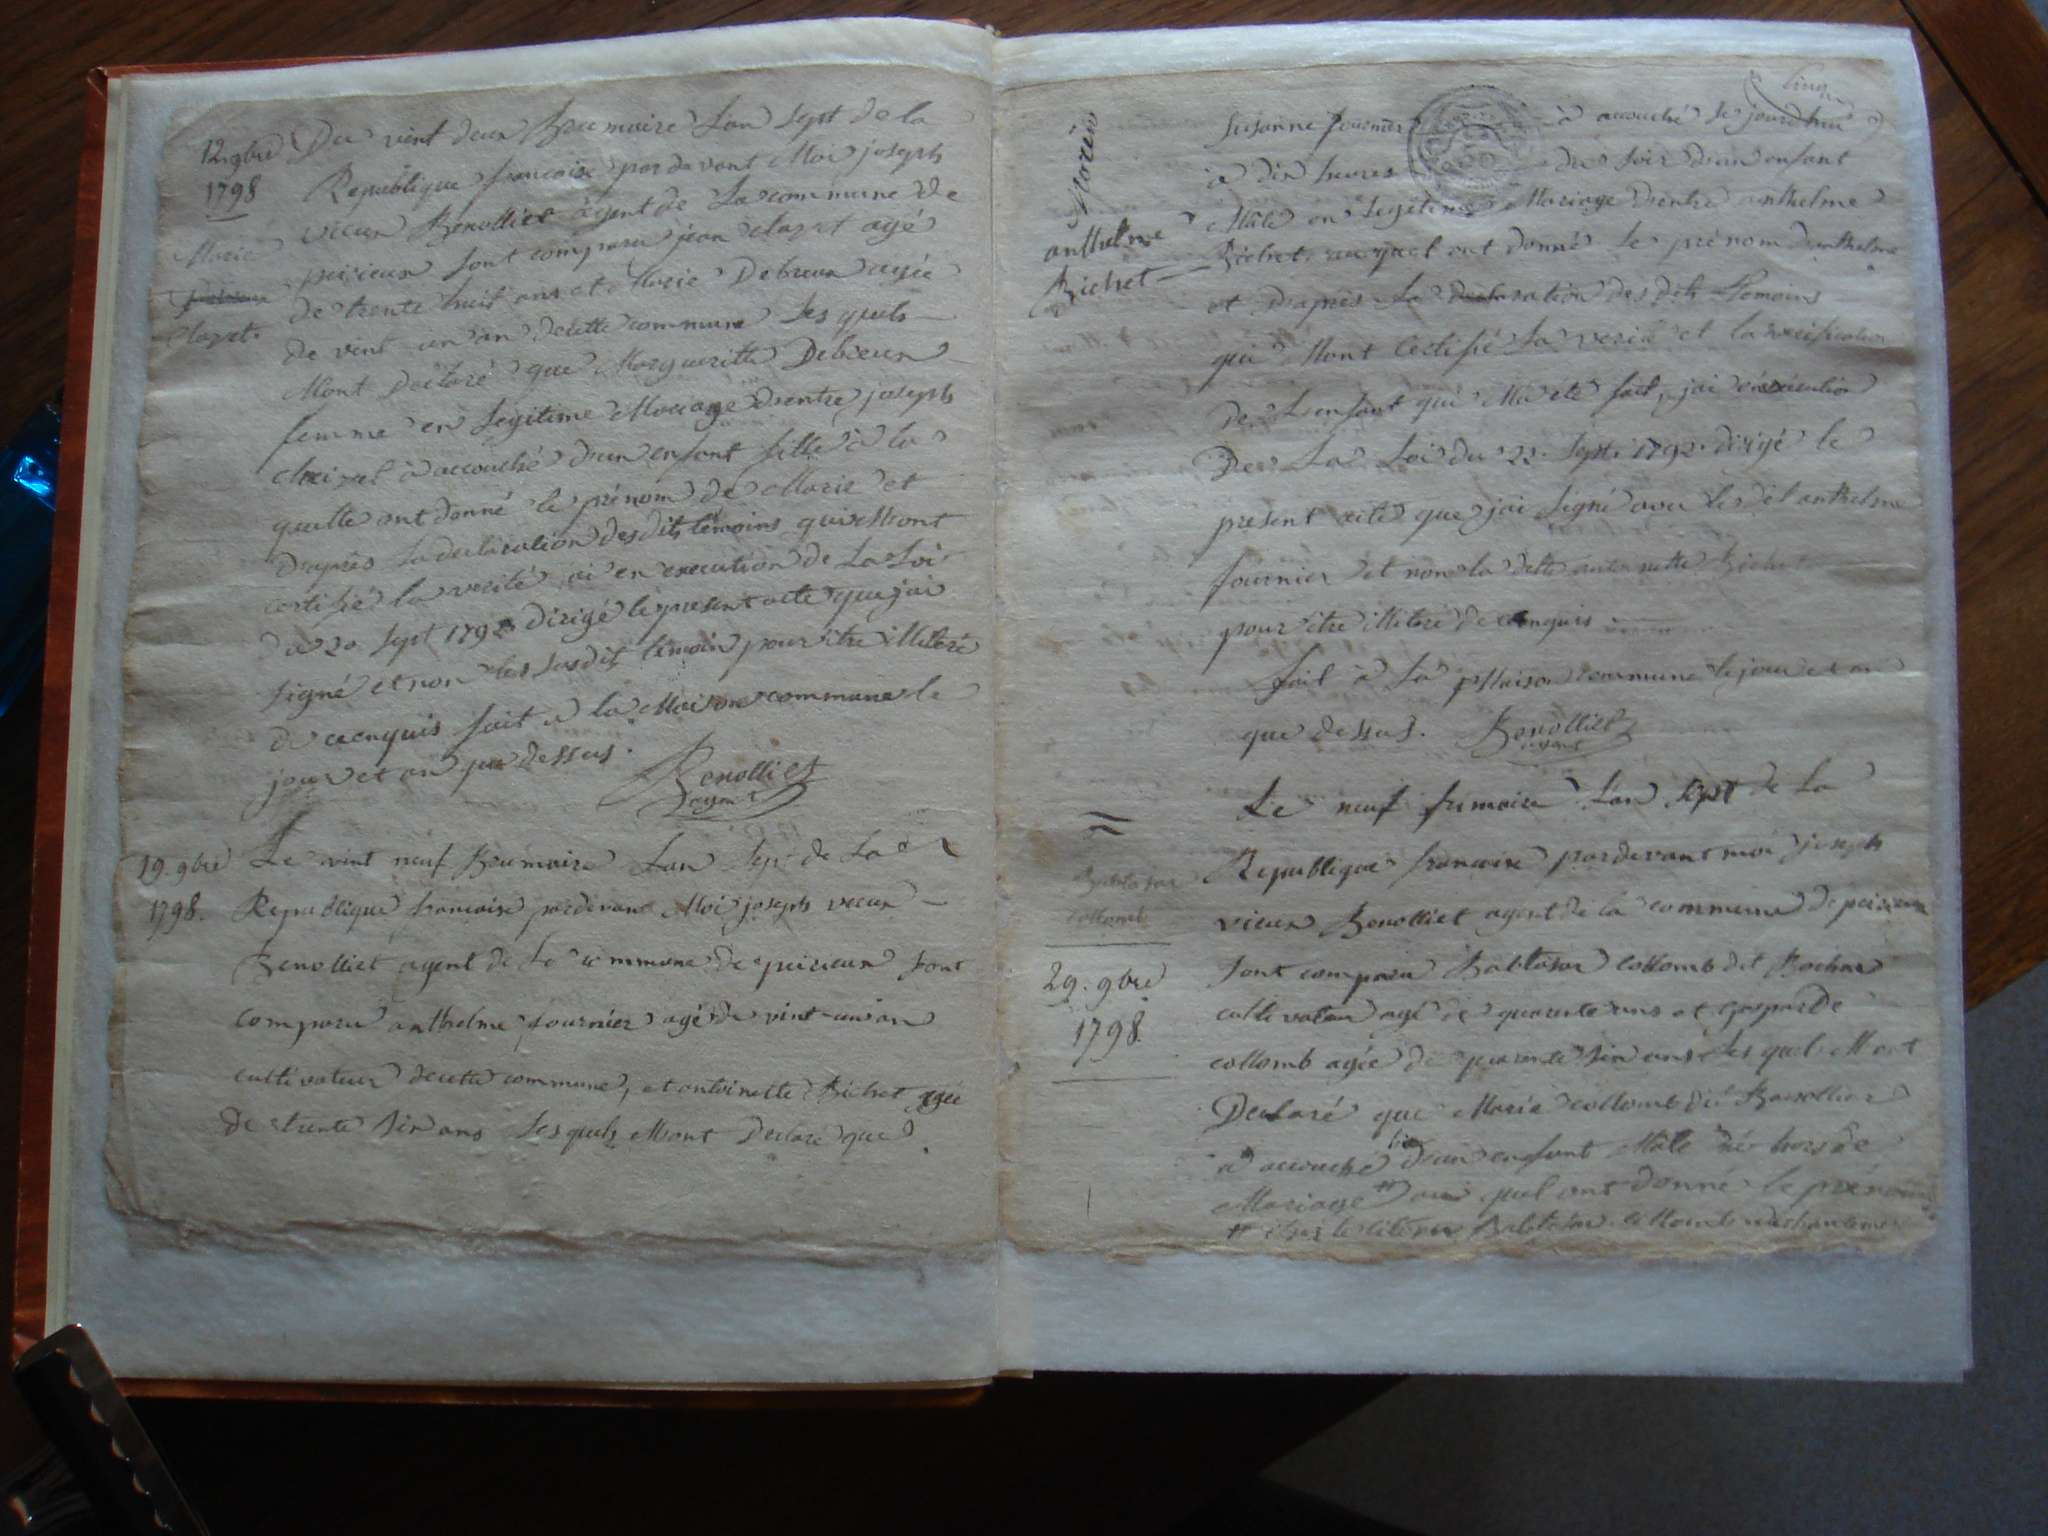 12. 9bre
1798
Marie
Clazet.
Du vint deux Brumaire Lan Sept de la
Republique francoise par devant Moi joseph
vieux Benolliet agent de La commune de
peizieux sont comparu jean clazet agé
de trente huit ans et Marie Debieux agée
de vint un an decette commune Les quels
Mont Declaré que Margueritte Debieux
femme en Legitime Mariage Dentre joseph
à accouché dun enfant fille à la
quelle ont donné le prénom de Marie et
Daprès La declaration desdits temoins qui Mont
certifié la verité ai en execution de La Loi
du 20 Sept 1792 dirigé le present acte que jai
signé et non les susdits temoin pour être illiteré
de ce enquis fait a la Maison commune le
jour et an que dessus.
Benolliet
agent
19. 9bre
1798.
Le vint neuf Brumaire Lan Sept de La
Republique francoise pardevant Moi joseph vieux
Benolliet agent de La commune de peizieux sont
comparu anthelme fournier agé de vint un an
cultivateur decette commune, et antoinette Richet agée
de trente six ans Les quels Mont Declaré que
anthelme
Richet
Susanne fournier à accouché ce jourdhui
à dix heures du soir dun enfant
Mâle en Legitime Mariage Dentre anthelme
Richet auquel ont donné Le prénom danthelme
et Daprès La declaration des dits Temoins
qui Mont Certifié La verité et la verification
De Lenfant qui Ma été fait, jai en execution
De La Loi du 22. Sept. 1792. dirigé le
present acte que jai signé avec le dit anthelme
fournier et non la ditte antoinette Richet
pour être illiteré de ce enquis
fait à La Maison commune le jour et an
que dessus. Benolliet
agent
Baltasar
Collomb
29. 9bre
1798
Le neuf frimaire Lan Sept de La
Republique francoise pardevant moi joseph
vieux Benolliet agent de la commune de peizieux
sont comparu Baltasar collomb dit
cultivateur agé de quarente ans et Gasparde
collomb agée de quarente six ans Les quels Mont
Declaré que Marie collomb dit
à accouché hier dun enfant Mâle né hors de
Mariage # au quel ont donné le prénom
# chez le citoyen Baltasar Collomb